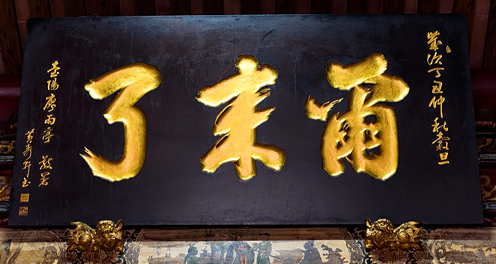 歲次丁丑仲秋穀旦
爾來了
陽廖雨亭 敬
書